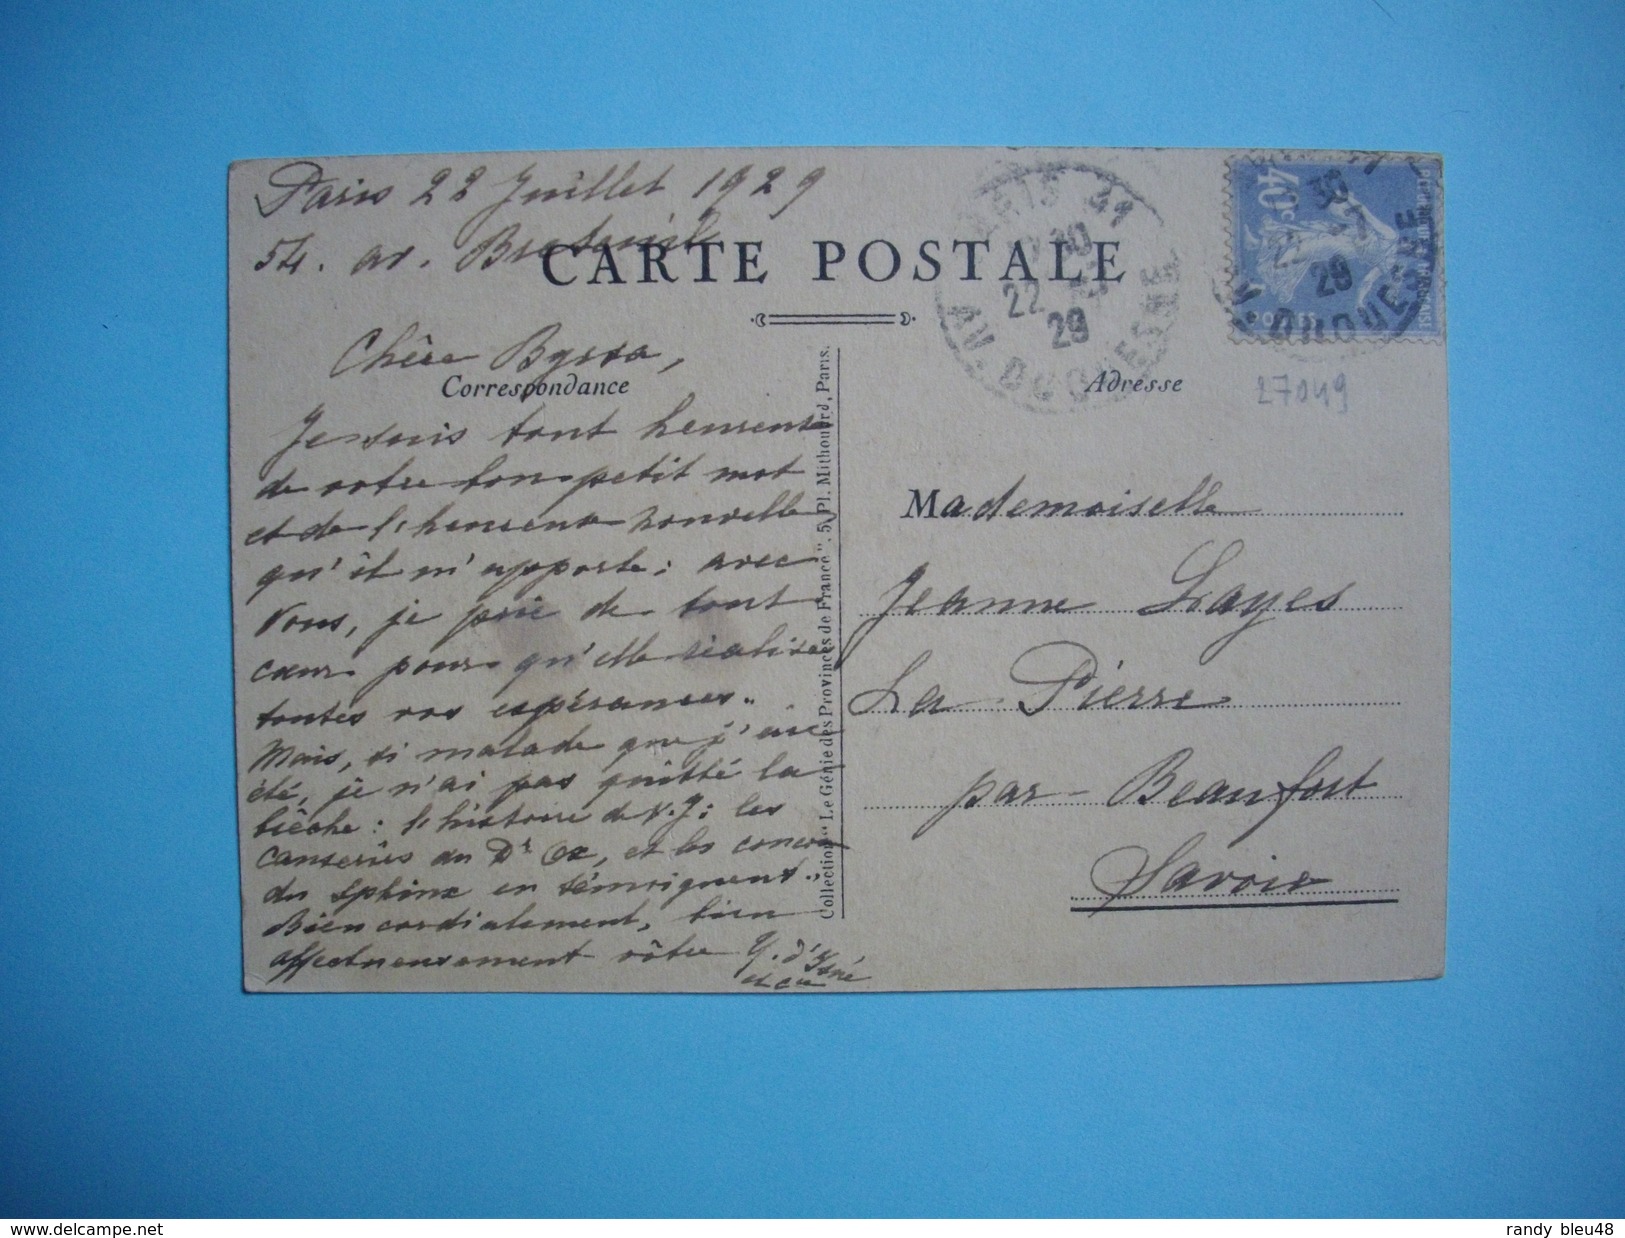 Paris 22 Juillet 1929
54. av. Breteuil
CARTE POSTALE
Chère Byssa,
Correspondance
Je suis tout heureuse
de votre bon petit mot
et de l'heureuse nouvelle
qu'il m'apporte : avec
vous, je prie de tout
cœur pour qu'elle réalise
toutes vos espérances..
Mais, si malade que j'aie
été, je n'ai pas quitté la
brèche : l'histoire de V.J : les
causeries du Dr Ox, et les concours
du Sphinx en témoignent..
Bien cordialement, bien
affectueusement vôtre
Collection "Le Génie des Provinces de France". 5, Pl. Mithouard, Paris.
PARIS 41
22
29
AV. DUQUESNE
40c
POSTES
22
29
AV. DUQUESNE
Adresse
27049
Mademoiselle
Jeanne Layes
La Pierre
par Beaufort
Savoie
delcampe.net
randy_bleu48